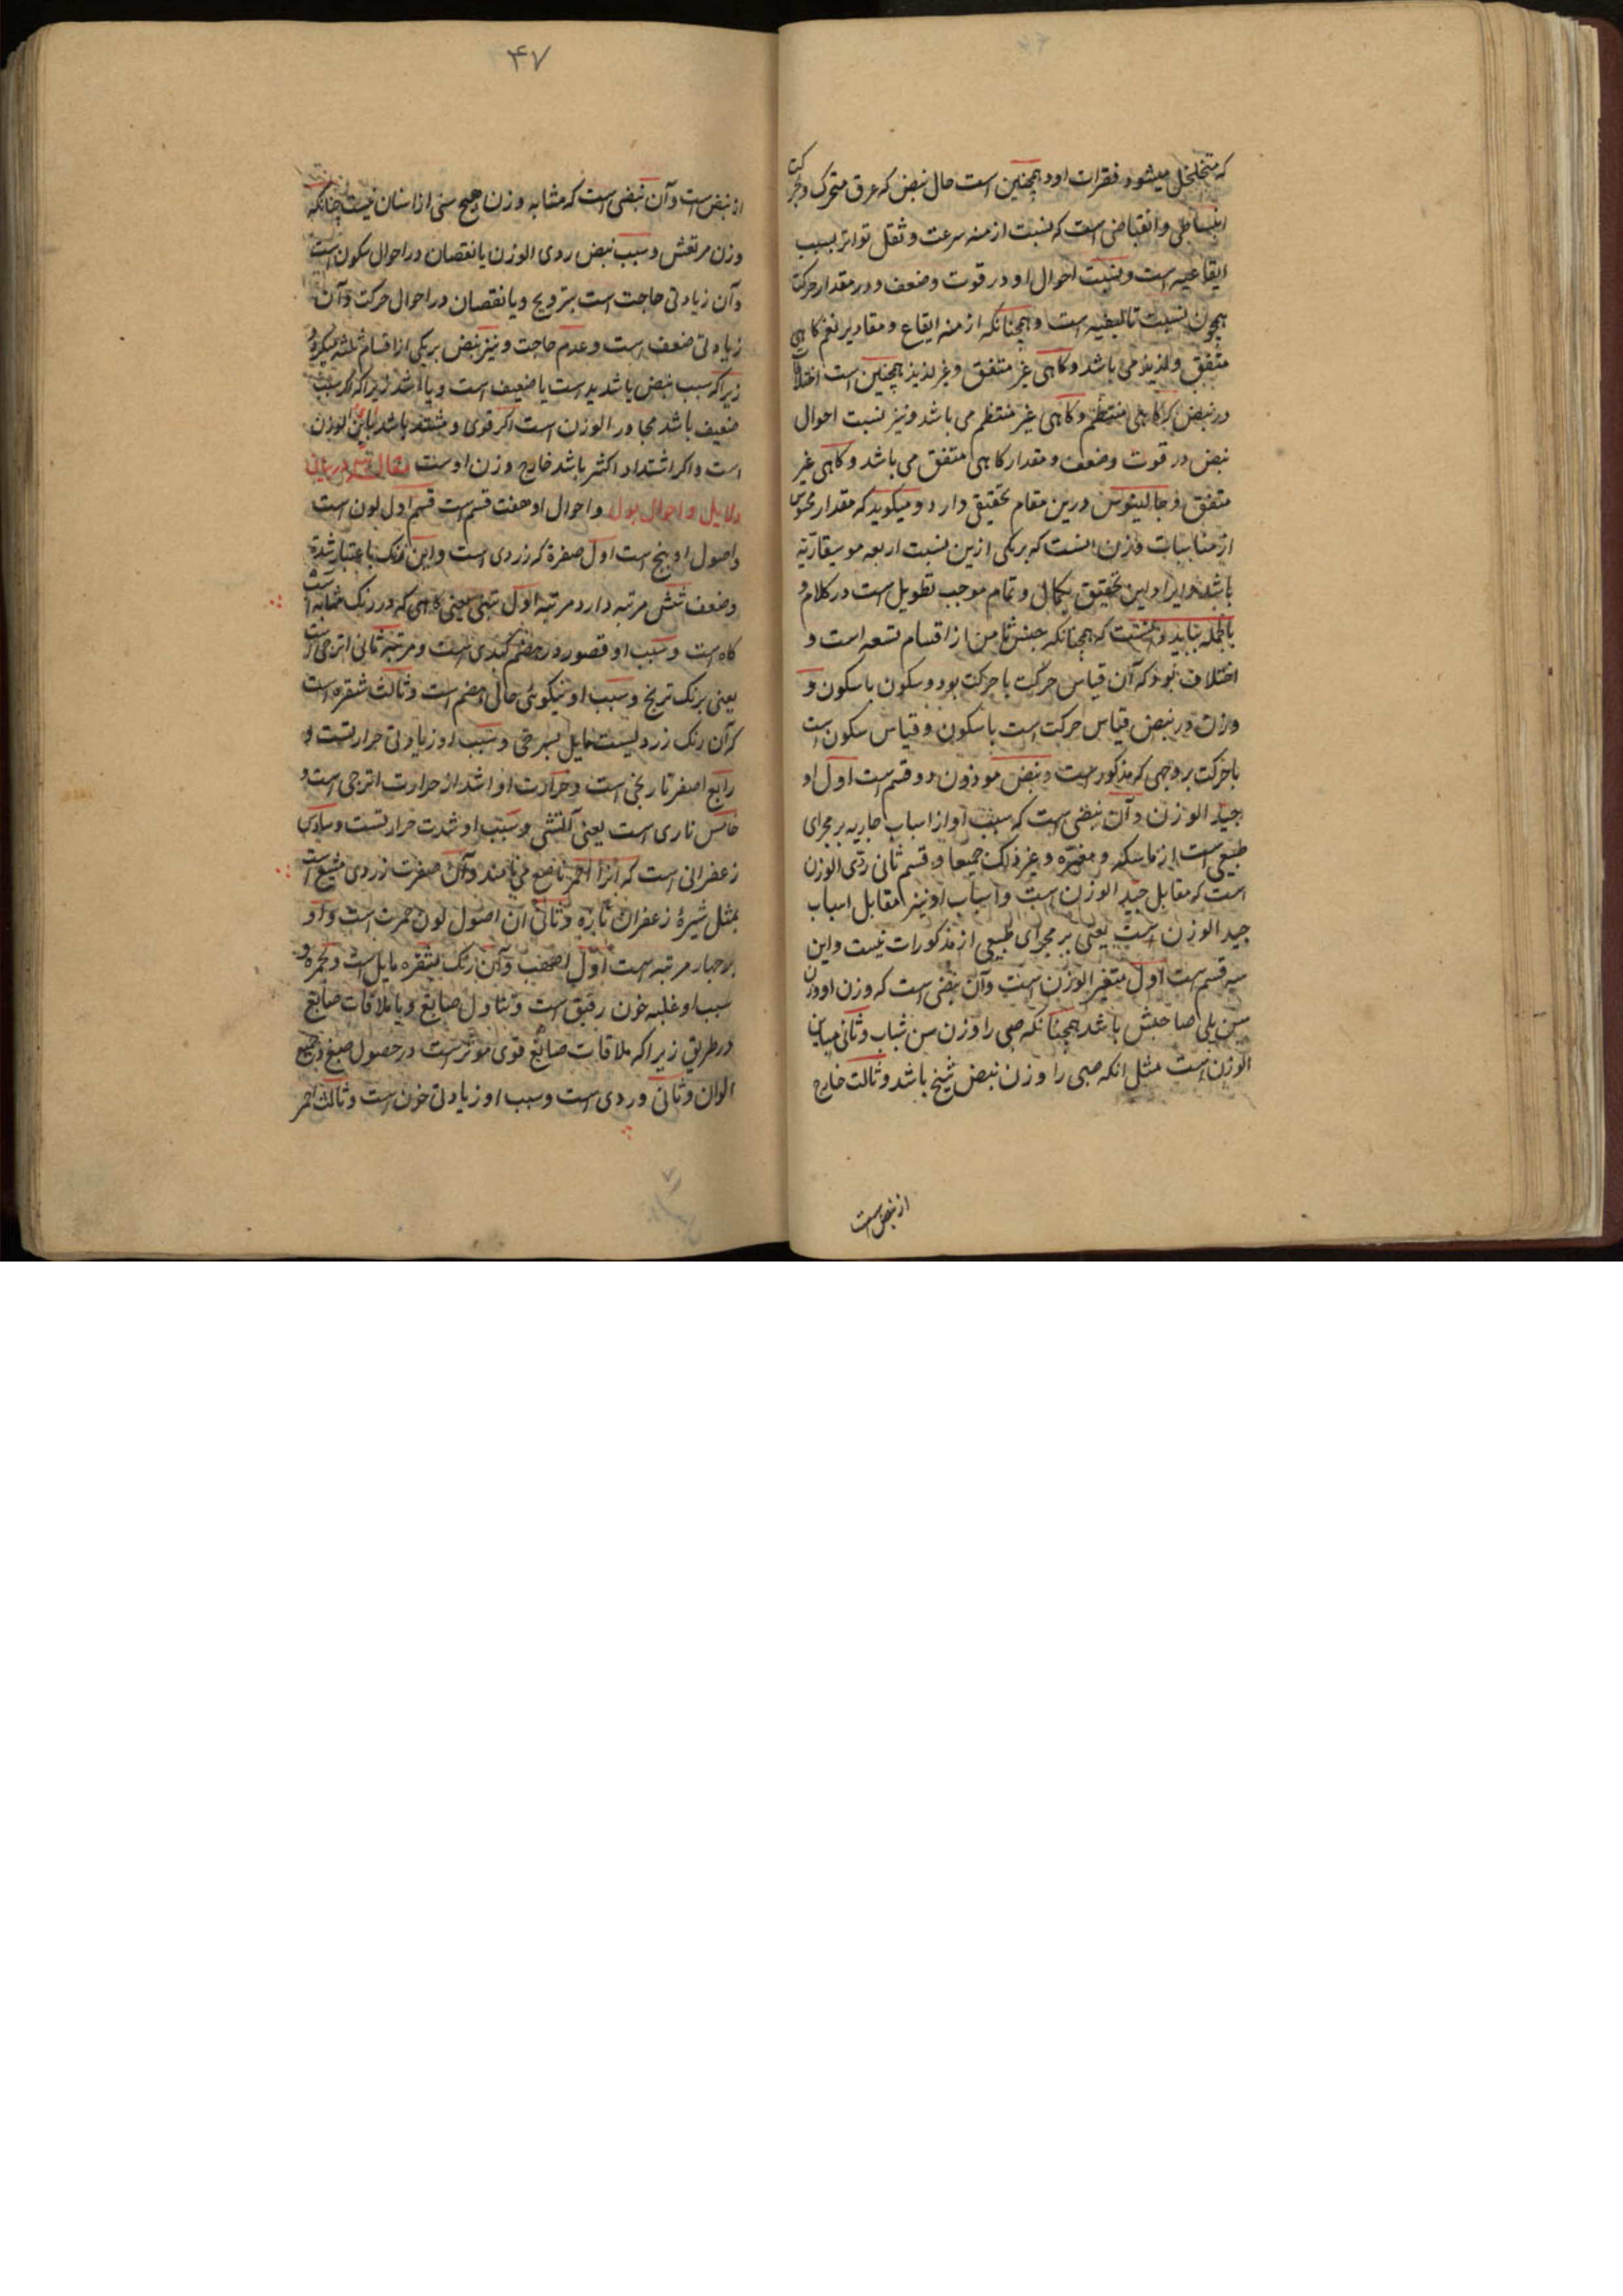 که متخلخل میشود فقرات او و همچنین است حال نبض که عرق متحرک و حرکت
انبساطی و انقباضی است که نسبت ازمنه سرعت و ثقل تواتر بسبب
ایقاعیه است و نسبت احوال او در قوت و ضعف و در مقدار حرکت
همچون نسبت تالیفیه است و همچنانکه ازمنه ایقاع و مقادیر نغم کاهی
متفق و لذیذ می باشد و کاهی غیر متفق و غیر لذیذ همچنین است اختلاف
در نبض که کاهی منتظم و کاهی غیر منتظم می باشد و نیز نسبت احوال
نبض در قوت و ضعف و مقدار کاهی متفق می باشد و کاهی غیر
متفق و جالینوس درین مقام تحقیقی دارد و میکوید که مقدار محسوس
از مناسبات وزن انست که بریکی ازین نسبت اربعه موسیقاریه
باشد و ایراد این تحقیق بکمال و تمام موجب تطویل است در کلام و
بالجمله بباید دانست که همچنانکه جنس ثامن از اقسام تسعه است و
اختلاف بود که آن قیاس حرکت با حرکت بود و سکون با سکون و
وزن در نبض قیاس حرکت است با سکون و قیاس سکون است
با حرکت بروجهی که مذکور است و نبض موزون دو قسم است اول او
جید الوزن و آن نبضی است که سبب او از اسباب جاریه بر مجرای
طبیعی است از ماسکه و مغیره و غیر ذلک جمیعا و قسم ثانی ردی الوزن
است که مقابل جید الوزن است و اسباب او نیز مقابل اسباب
جید الوزن است یعنی بر مجرای طبیعی از مذکورات نیست و این
سه قسم است اول متغیر الوزن است و آن نبضی است که وزن او وزن
سن یلی صاحبش باشد همچنانکه صبی را وزن سن شباب و ثانی مباین
الوزن است مثل انکه صبی را وزن نبض شیخ باشد و ثالث خارج
از نبض است
۴۷
از نبض است و آن نبضی است که مشابه وزن هیچ سنی از اسنان نیست چنانکه
وزن مرتعش و سبب نبض ردی الوزن یا نقصان در احوال سکون است
و آن زیادتی حاجت است بترویح و یا نقصان در احوال حرکت و آن
زیادتی ضعف است و عدم حاجت و نیز نبض بریکی از اقسام ثلثه
زیرا که سبب نبض یا شدید است یا ضعیف است و یا اشد زیرا که اکر سبب
ضعیف باشد مجاور الوزن است اکر قوی و مشتد باشد مباین الوزن
است و اکر اشتداد اکثر باشد خارج وزن اوست
دلایل و احوال بول و احوال او هفت قسم است قسم اول لون است
و اصول او پنج است اول صفرة که زردی است و این رنک باعتبار شدة
و ضعف شش مرتبه دارد مرتبه اول تبنی یعنی کاهی که در رنک مشابه است
کاه است و سبب او قصور در هضم کبدی است و مرتبه ثانی اترجی است
یعنی برنک ترنج و سبب او نیکوئی حال هضم است و ثالث شقره است
که آن رنک زردیست مایل بسرخی و سبب او زیادتی حرارتست و
رابع اصفر نارنجی است و حرارت او اشد از حرارت اترجی است و
خامس ناری است یعنی آتشی و سبب او شدت حرارتست و سادس
زعفرانی است که آنرا احمر ناصع می نامند و آن صفرت زردی مشبع است
بمثل شیرهٔ زعفران تازه و ثانی آن اصول لون حمرت است و او
بر چهار مرتبه است اول اصهب و آن رنک بشقره مایل است و بحمره و
سبب او غلبه خون رقیق است و تناول صابغ و یا ملاقات صابغ
در طریق زیرا که ملاقات صابغ قوی موثرست در حصول صبغ و جمیع
الوان و ثانی وردی است و سبب او زیادتی خون است و ثالث احمر